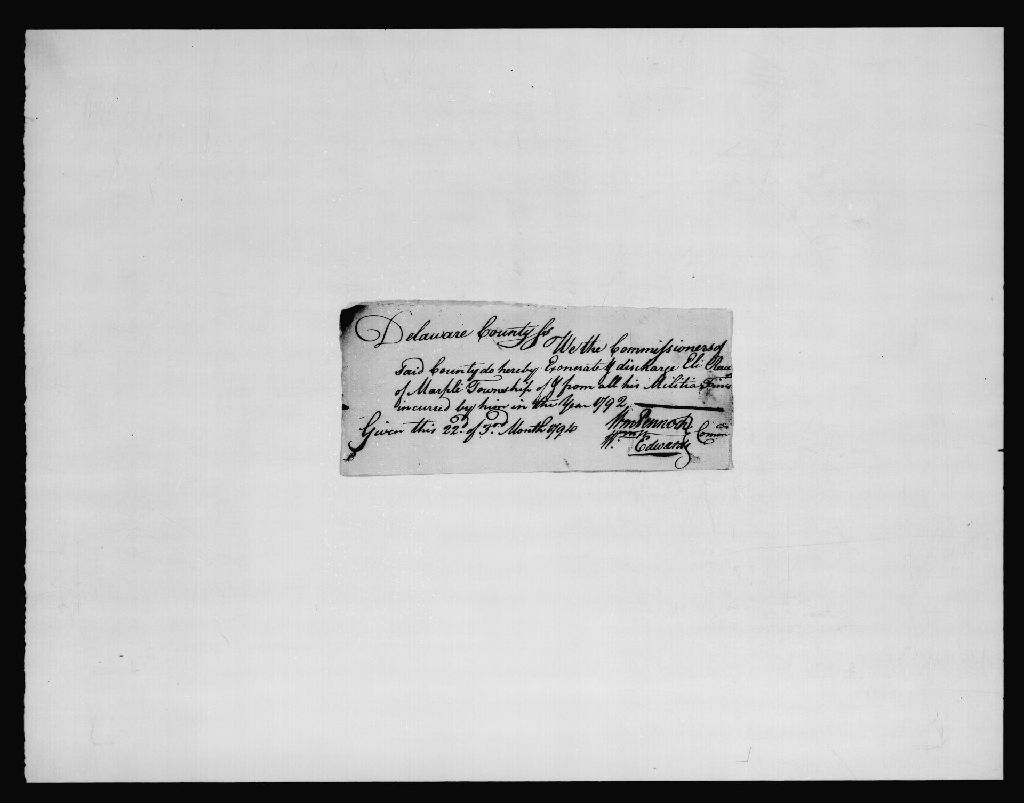 Delaware County ss
We the Commissioners of
said County do hereby Exonerate & discharge Eli
of Marple Township of & from all his Militia Fines
incured by him in the Year 1792
Given this 22d. of 3rd Month 1794
Wm Pennock
Wm. Edwards